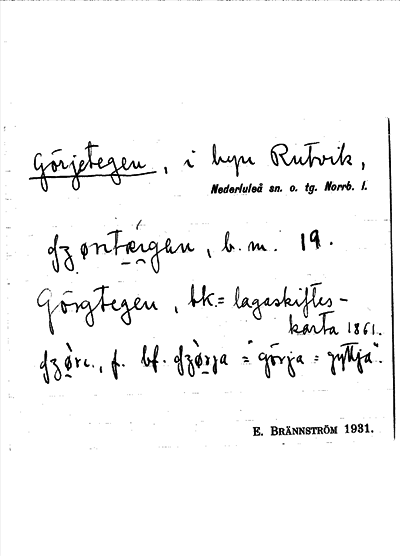 Görjetegen, i byn Rutvik,
Nederluleå sn. o. tg. Norrb. l.
b. m. 19.
Görgtegen, bk = lagaskiftes-
karta 1861.
f. bf. = "görja = gyttja".
E. BRÄNNSTRÖM 1931.